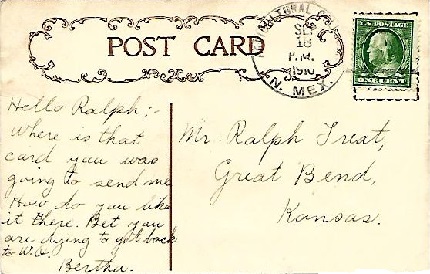 POST CARD
SEP
18
P.M.
1910
N. MEX.
U.S. POSTAGE
ONE CENT
Hello Ralph;-
Where is that
card you was
going to send me
How do you like
it there. Bet you
are dying to get back
to W.C.
Bertha.
Mr. Ralph Treat,
Great Bend,
Kansas.